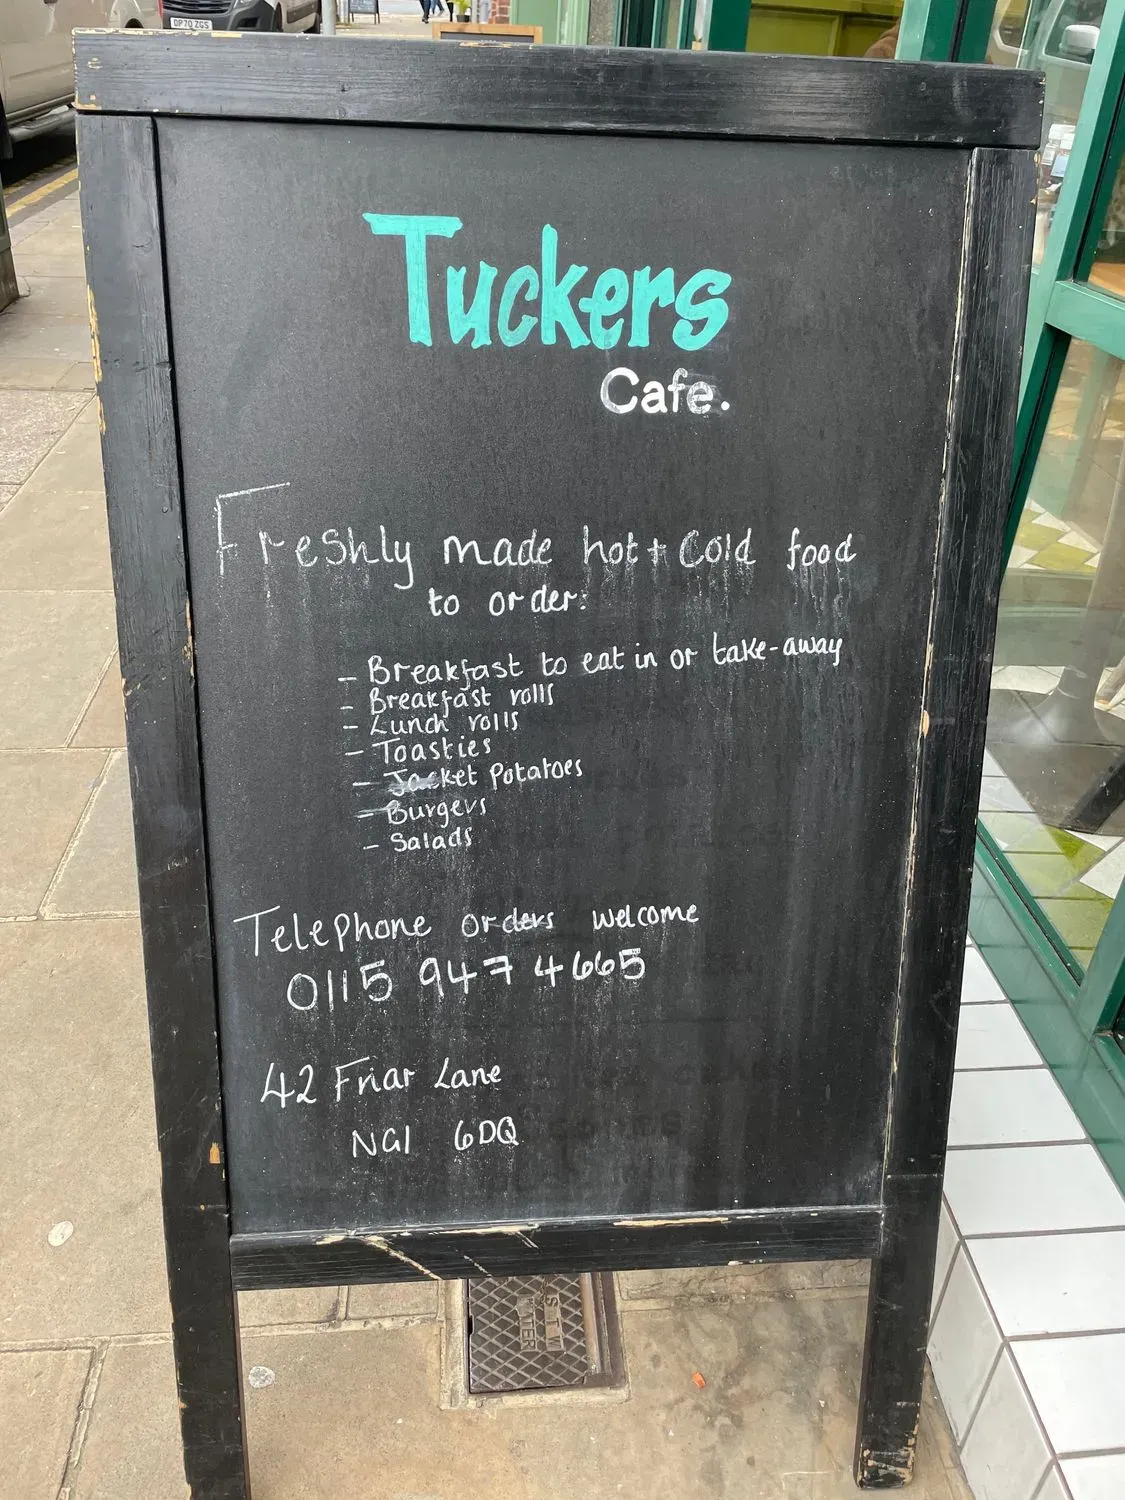 OP70 ZGS
Tuckers
Cafe.
Freshly made hot + Cold food
to order:
- Breakfast to eat in or take-away
- Breakfast rolls
- Lunch rolls
- Toasties
- Jacket Potatoes
- Burgers
- Salads
Telephone orders welcome
0115 947 4665
42 Friar Lane
NG1 6DQ
STW
WATER